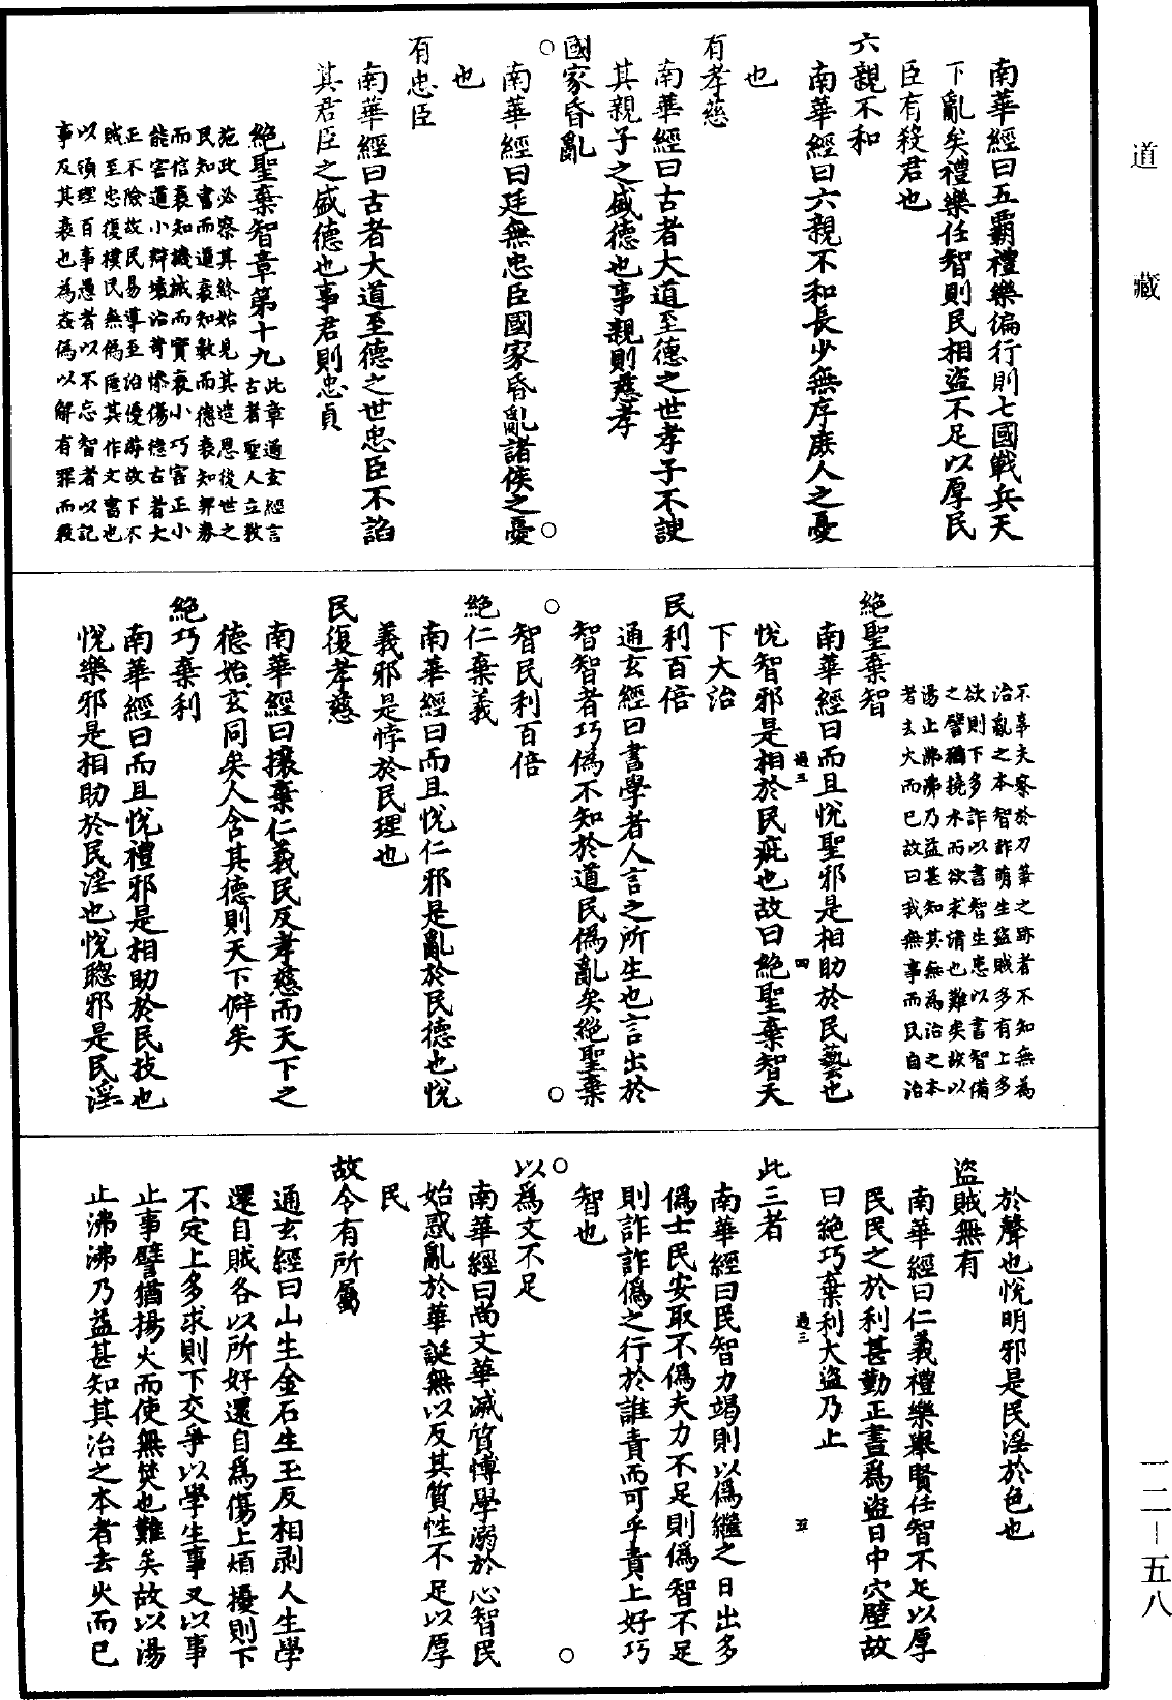 道藏
南華經曰五霸禮樂徧行則七國戰兵天
下亂矣禮樂任智則民相盜不足以厚民
臣有殺君也
六親不和
南華經曰六親不和長少無序庶人之憂
也
有孝慈
南華經曰古者大道至德之世孝子不諛
其親子之盛德也事親則慈孝
國家昏亂
南華經曰廷無忠臣國家昏亂諸侯之憂
也
有忠臣
南華經曰古者大道至德之世忠臣不諂
其君臣之盛德也事君則忠貞
絕聖棄智章第十九
此章通玄經言
古者聖人立教
施政必察其終始見其造恩後世之
民知書而道衰知數而德衰知契券
而信衰知機械而實衰小巧害正小
能害道小辯壞治苛慘傷德古者大
正不險故民易導至治優游故下不
賊至忠復樸民無偽匿其作文書也
以領理百事愚者以不忘智者以記
事及其衰也為姦偽以解有罪而殺
不事夫察於刀筆之跡者不知無為
治亂之本智詐萌生盜賊多有上多
欲則下多詐以書智生患以書智備
之譬猶撓水而欲求清也難矣故以
湯止沸沸乃益甚知其無為治之本
者去火而已故曰我無事而民自治
絕聖棄智
南華經曰而且悅聖邪是相助於民藝也
悅智邪是相於民疵也故曰絕聖棄智天
下大治
民利百倍
通玄經曰書學者人言之所生也言出於
智智者巧偽不知於道民偽亂矣絕聖棄
智民利百倍
絕仁棄義
南華經曰而且悅仁邪是亂於民德也悅
義邪是悖於民理也
民復孝慈
南華經曰攘棄仁義民反孝慈而天下之
德始玄同矣人含其德則天下僻矣
絕巧棄利
南華經曰而且悅禮邪是相助於民技也
悅樂邪是相助於民淫也悅聰邪是民淫
於聲也悅明邪是民淫於色也
盜賊無有
南華經曰仁義禮樂舉賢任智不足以厚
民民之於利甚勤正晝為盜日中穴壁故
曰絕巧棄利大盜乃止
此三者
南華經曰民智力竭則以偽繼之日出多
偽士民安取不偽夫力不足則偽智不足
則詐詐偽之行於誰責而可乎責上好巧
智也
以為文不足
南華經曰尚文華滅質博學溺於心智民
始惑亂於華誕無以反其質性不足以厚
民
故令有所屬
通玄經曰山生金石生玉反相剥人生學
還自賊各以所好還自為傷上煩擾則下
不定上多求則下交爭以學生事又以事
止事譬猶揚火而使無焚也難矣故以湯
止沸沸乃益甚知其治之本者去火而已
過三
四
過三
五
一二－五八